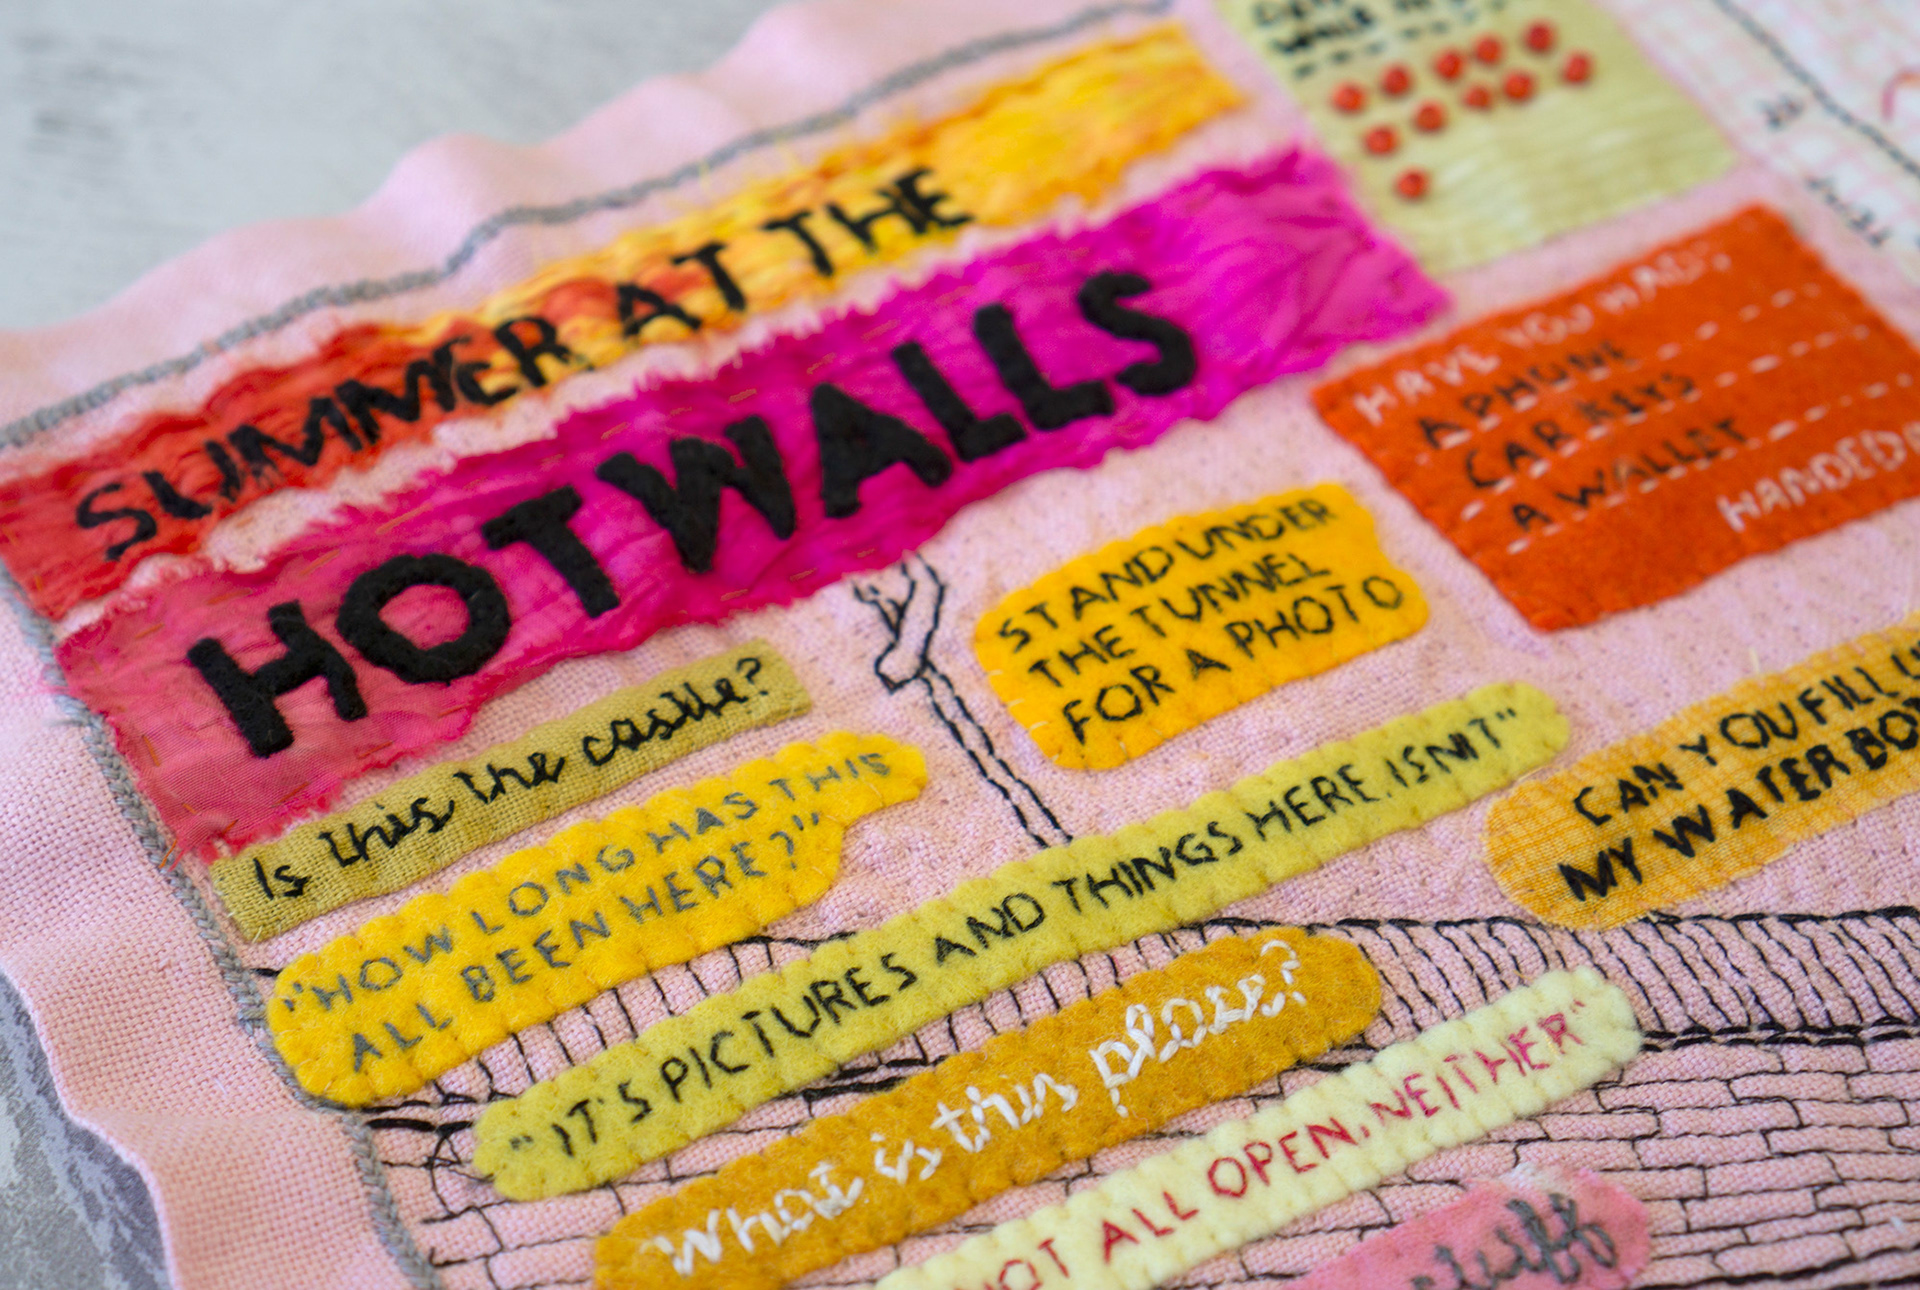 SUMMER AT THE
HOTWALLS
HAVE YOU HAD:
A PHONE
CAR KEYS
A WALLET
HANDED
STAND UNDER
THE TUNNEL
FOR A PHOTO
Is this the castle?
"HOW LONG HAS THIS
ALL BEEN HERE?"
CAN YOU FILL
MY WATER
"IT'S PICTURES AND THINGS HERE, ISNIT"
What is this place?
NOT ALL OPEN, NEITHER"